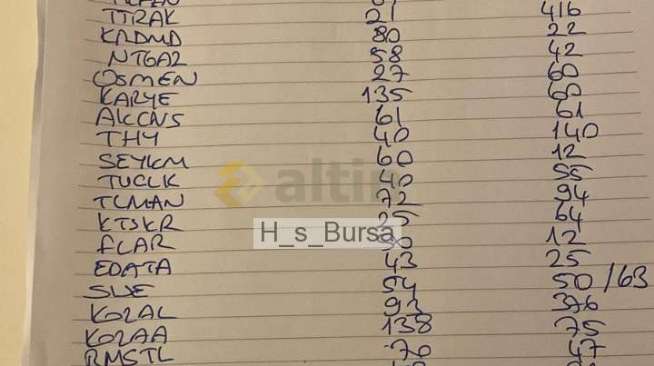 TTRAK 21 416
KADMD 80 22
NTGAZ 58 42
OSMEN 27 60
KARYE 135 60
AKCNS 61 61
THY 40 140
SEYKM 60 12
TUCLK 40 55
TCMAN 72 94
altin
KTSKR 25 64
H_s_Bursa
FLAR 12
EDATA 43 25
SUE 54 50/63
KOZAL 93 376
KOZAA 138 75
RMSTL 70 47